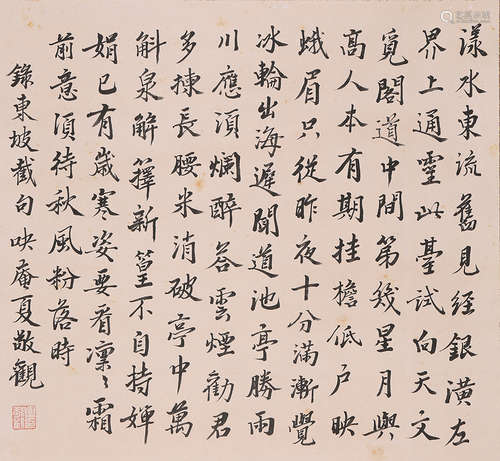 漾水東流舊見經銀潢左
界上通靈此臺試向天文
覓閣道中間第幾星月與
高人本有期挂檐低戶映
蛾眉只從昨夜十分滿漸覺
冰輪出海遲聞道池亭勝兩
川應須爛醉答雲煙勸君
多揀長腰米消破亭中萬
斛泉解籜新篁不自持嬋
娟已有歲寒姿要看凜〻霜
前意須待秋風粉落時
錄東坡截句映庵夏敬觀